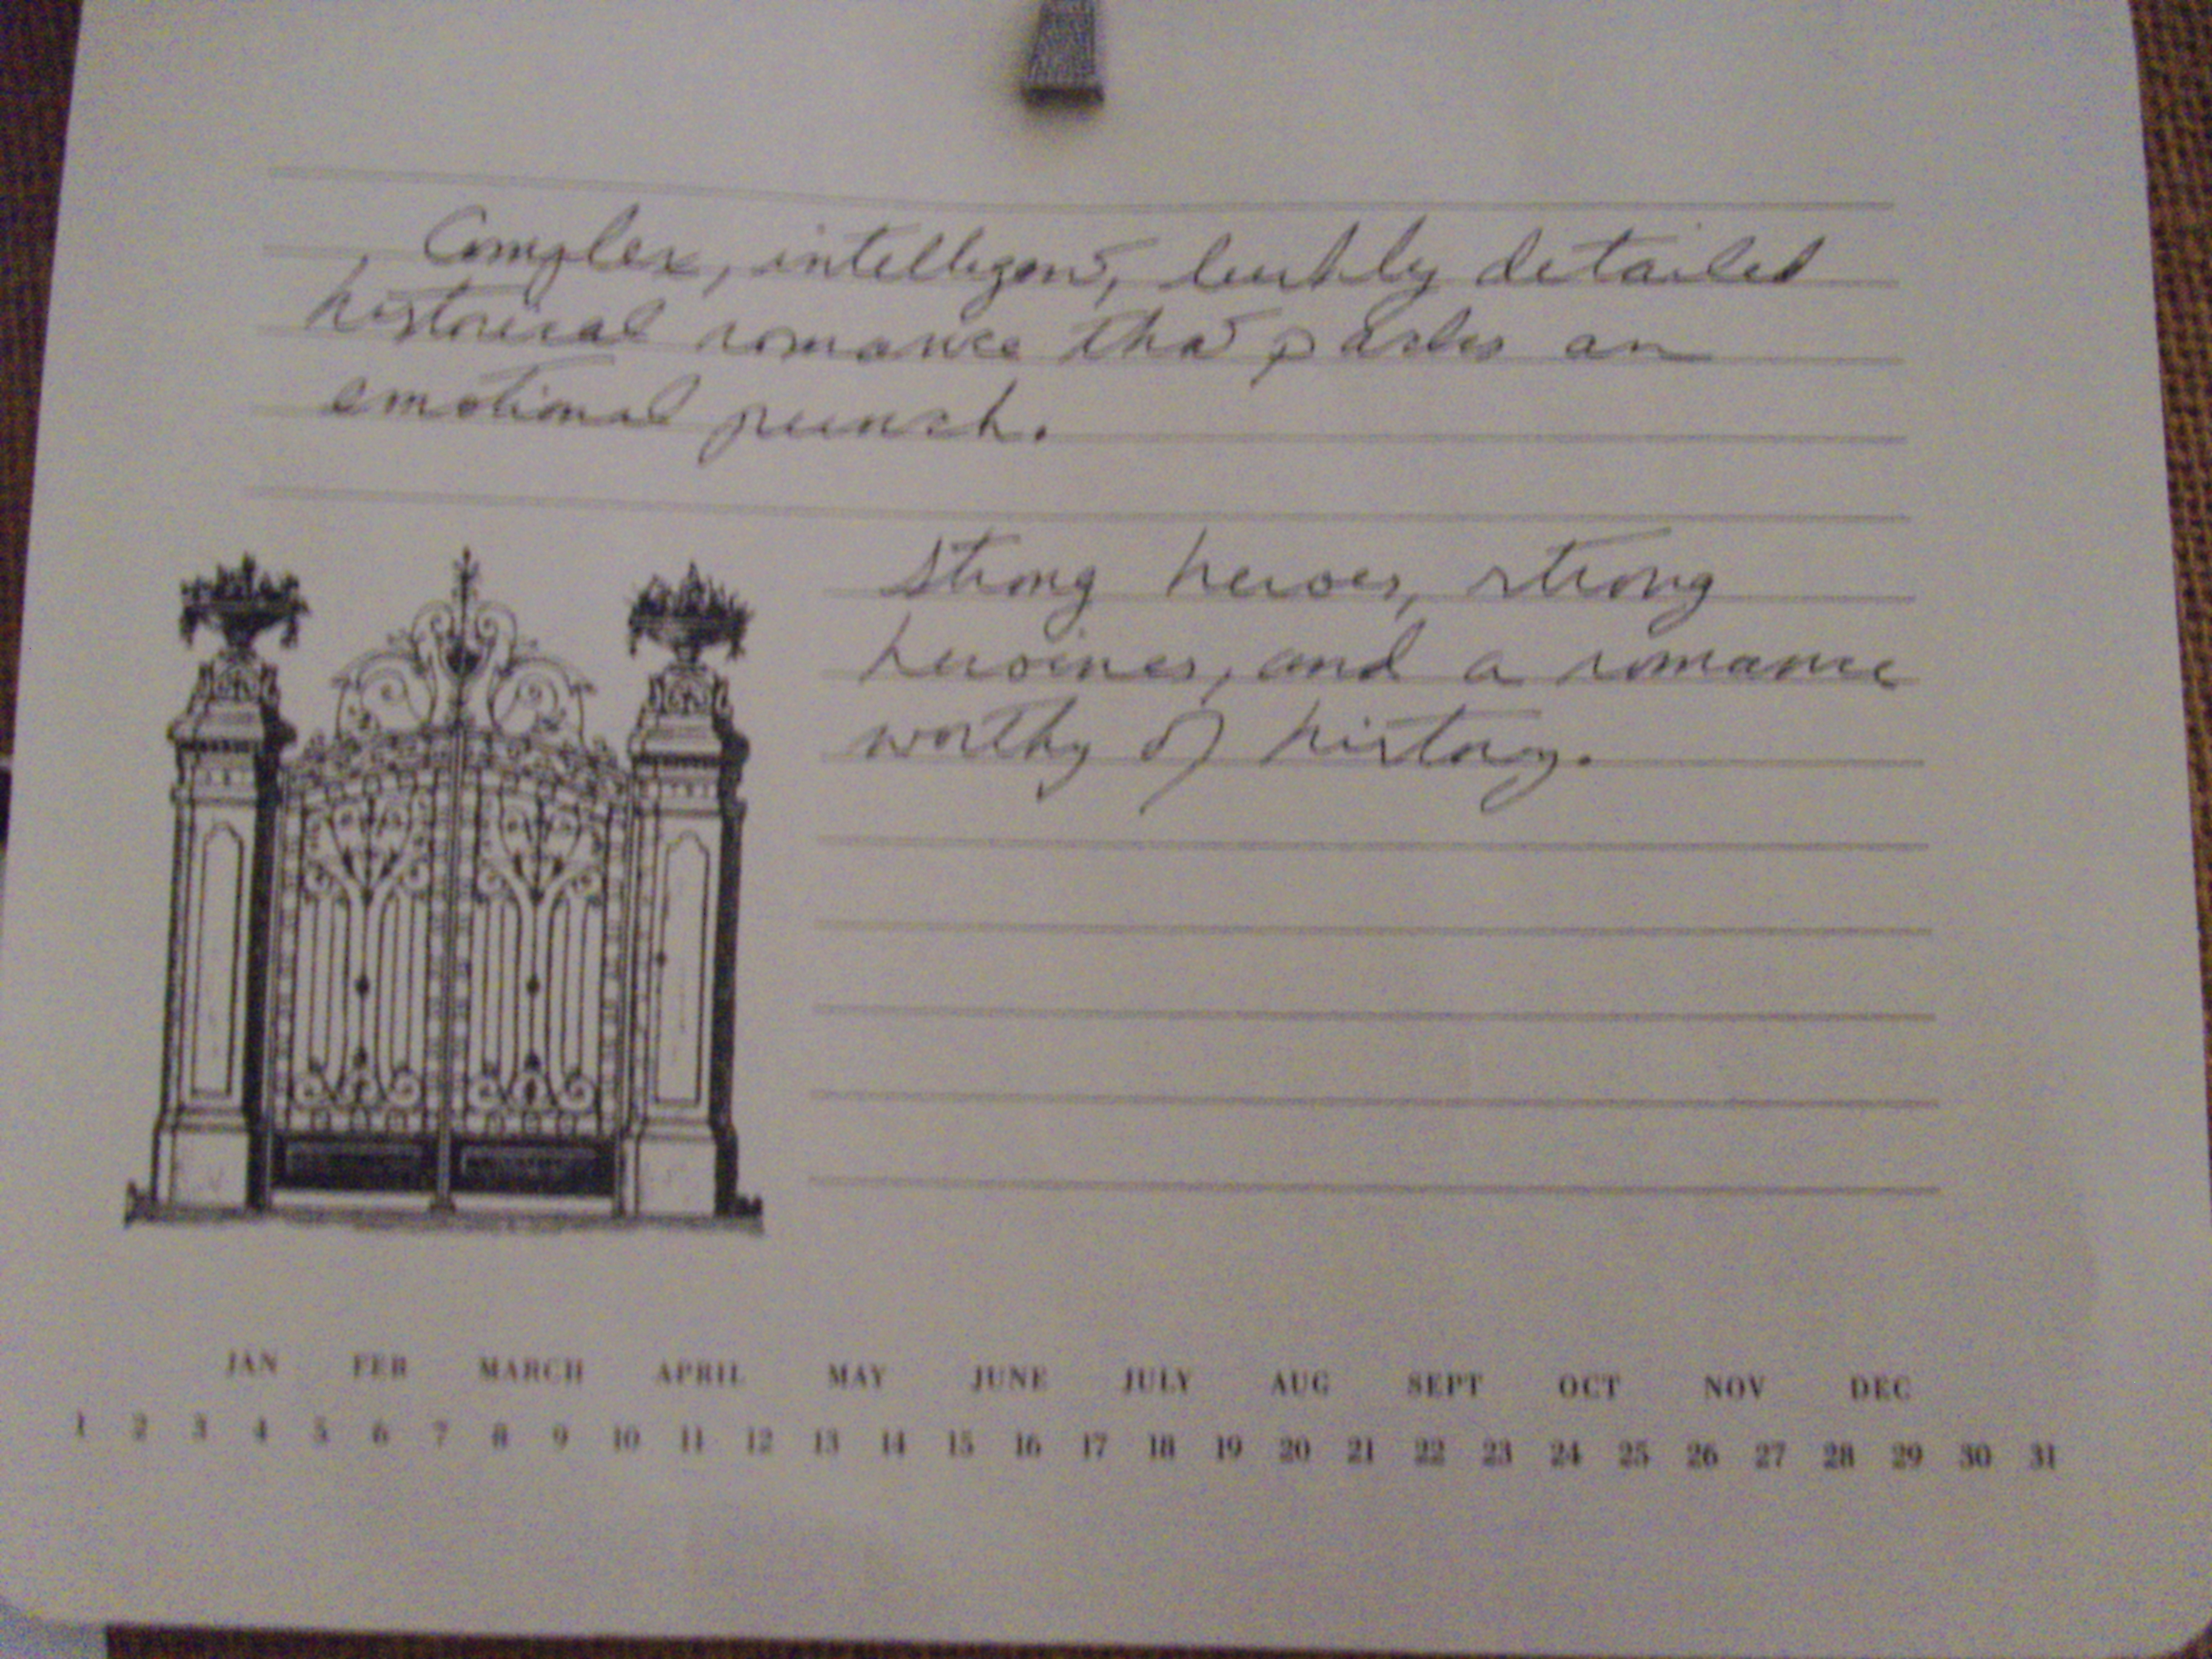 Complex, intelligent, lushly detailed
historical romance that packs an
emotional punch.
Strong heroes, strong
heroines, and a romance
worthy of history.
JAN FEB MARCH APRIL MAY JUNE JULY AUG SEPT OCT NOV DEC
1 2 3 4 5 6 7 8 9 10 11 12 13 14 15 16 17 18 19 20 21 22 23 24 25 26 27 28 29 30 31